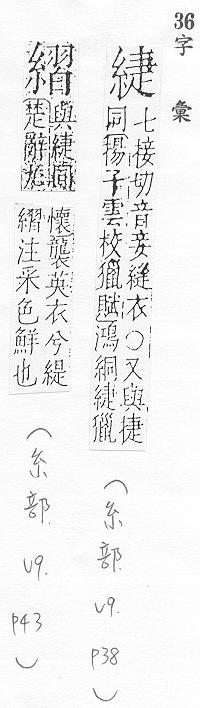 36字 彙
緁 七接切音妾縫衣〇又與捷
同揚子雲校獵賦鴻絧緁獵
(糸部. v9. P38)
緝與緁同
楚辭
懷襲英衣兮緹
緝注采色鮮也
(糸部. v9. P43)